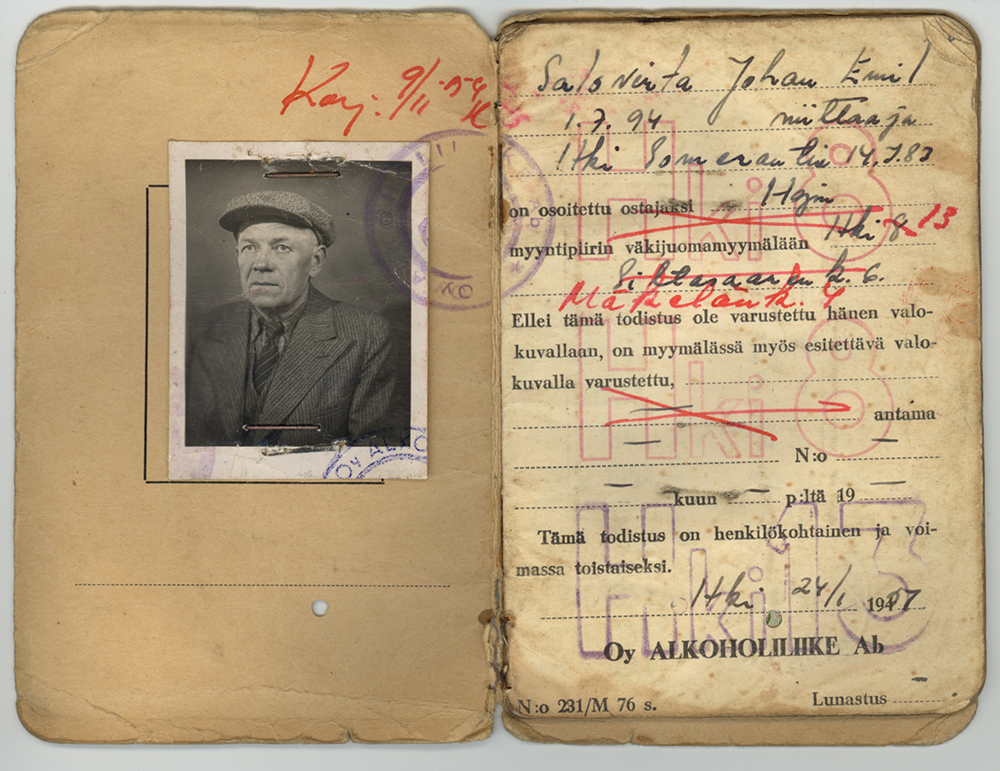 Korj. 9/11-
OY ALKO
Salovirta Johan Emil
1.7.94 niittaaja
Hki
on osoitettu ostajaksi
myyntipiirin väkijuomamyymälään Hki 8 13
Siltasaarenk. 6.
Mäkelänk. 4
Ellei tämä todistus ole varustettu hänen valo-
kuvallaan, on myymälässä myös esitettävä valo-
kuvalla varustettu,
antama
N:o
kuun p:ltä 19
Tämä todistus on henkilökohtainen ja voi-
massa toistaiseksi.
Hki 24/1 1947
Oy ALKOHOLILIIKE Ab
N:o 231/M 76 s. Lunastus
Hki 8
Hki 8
Hki 13